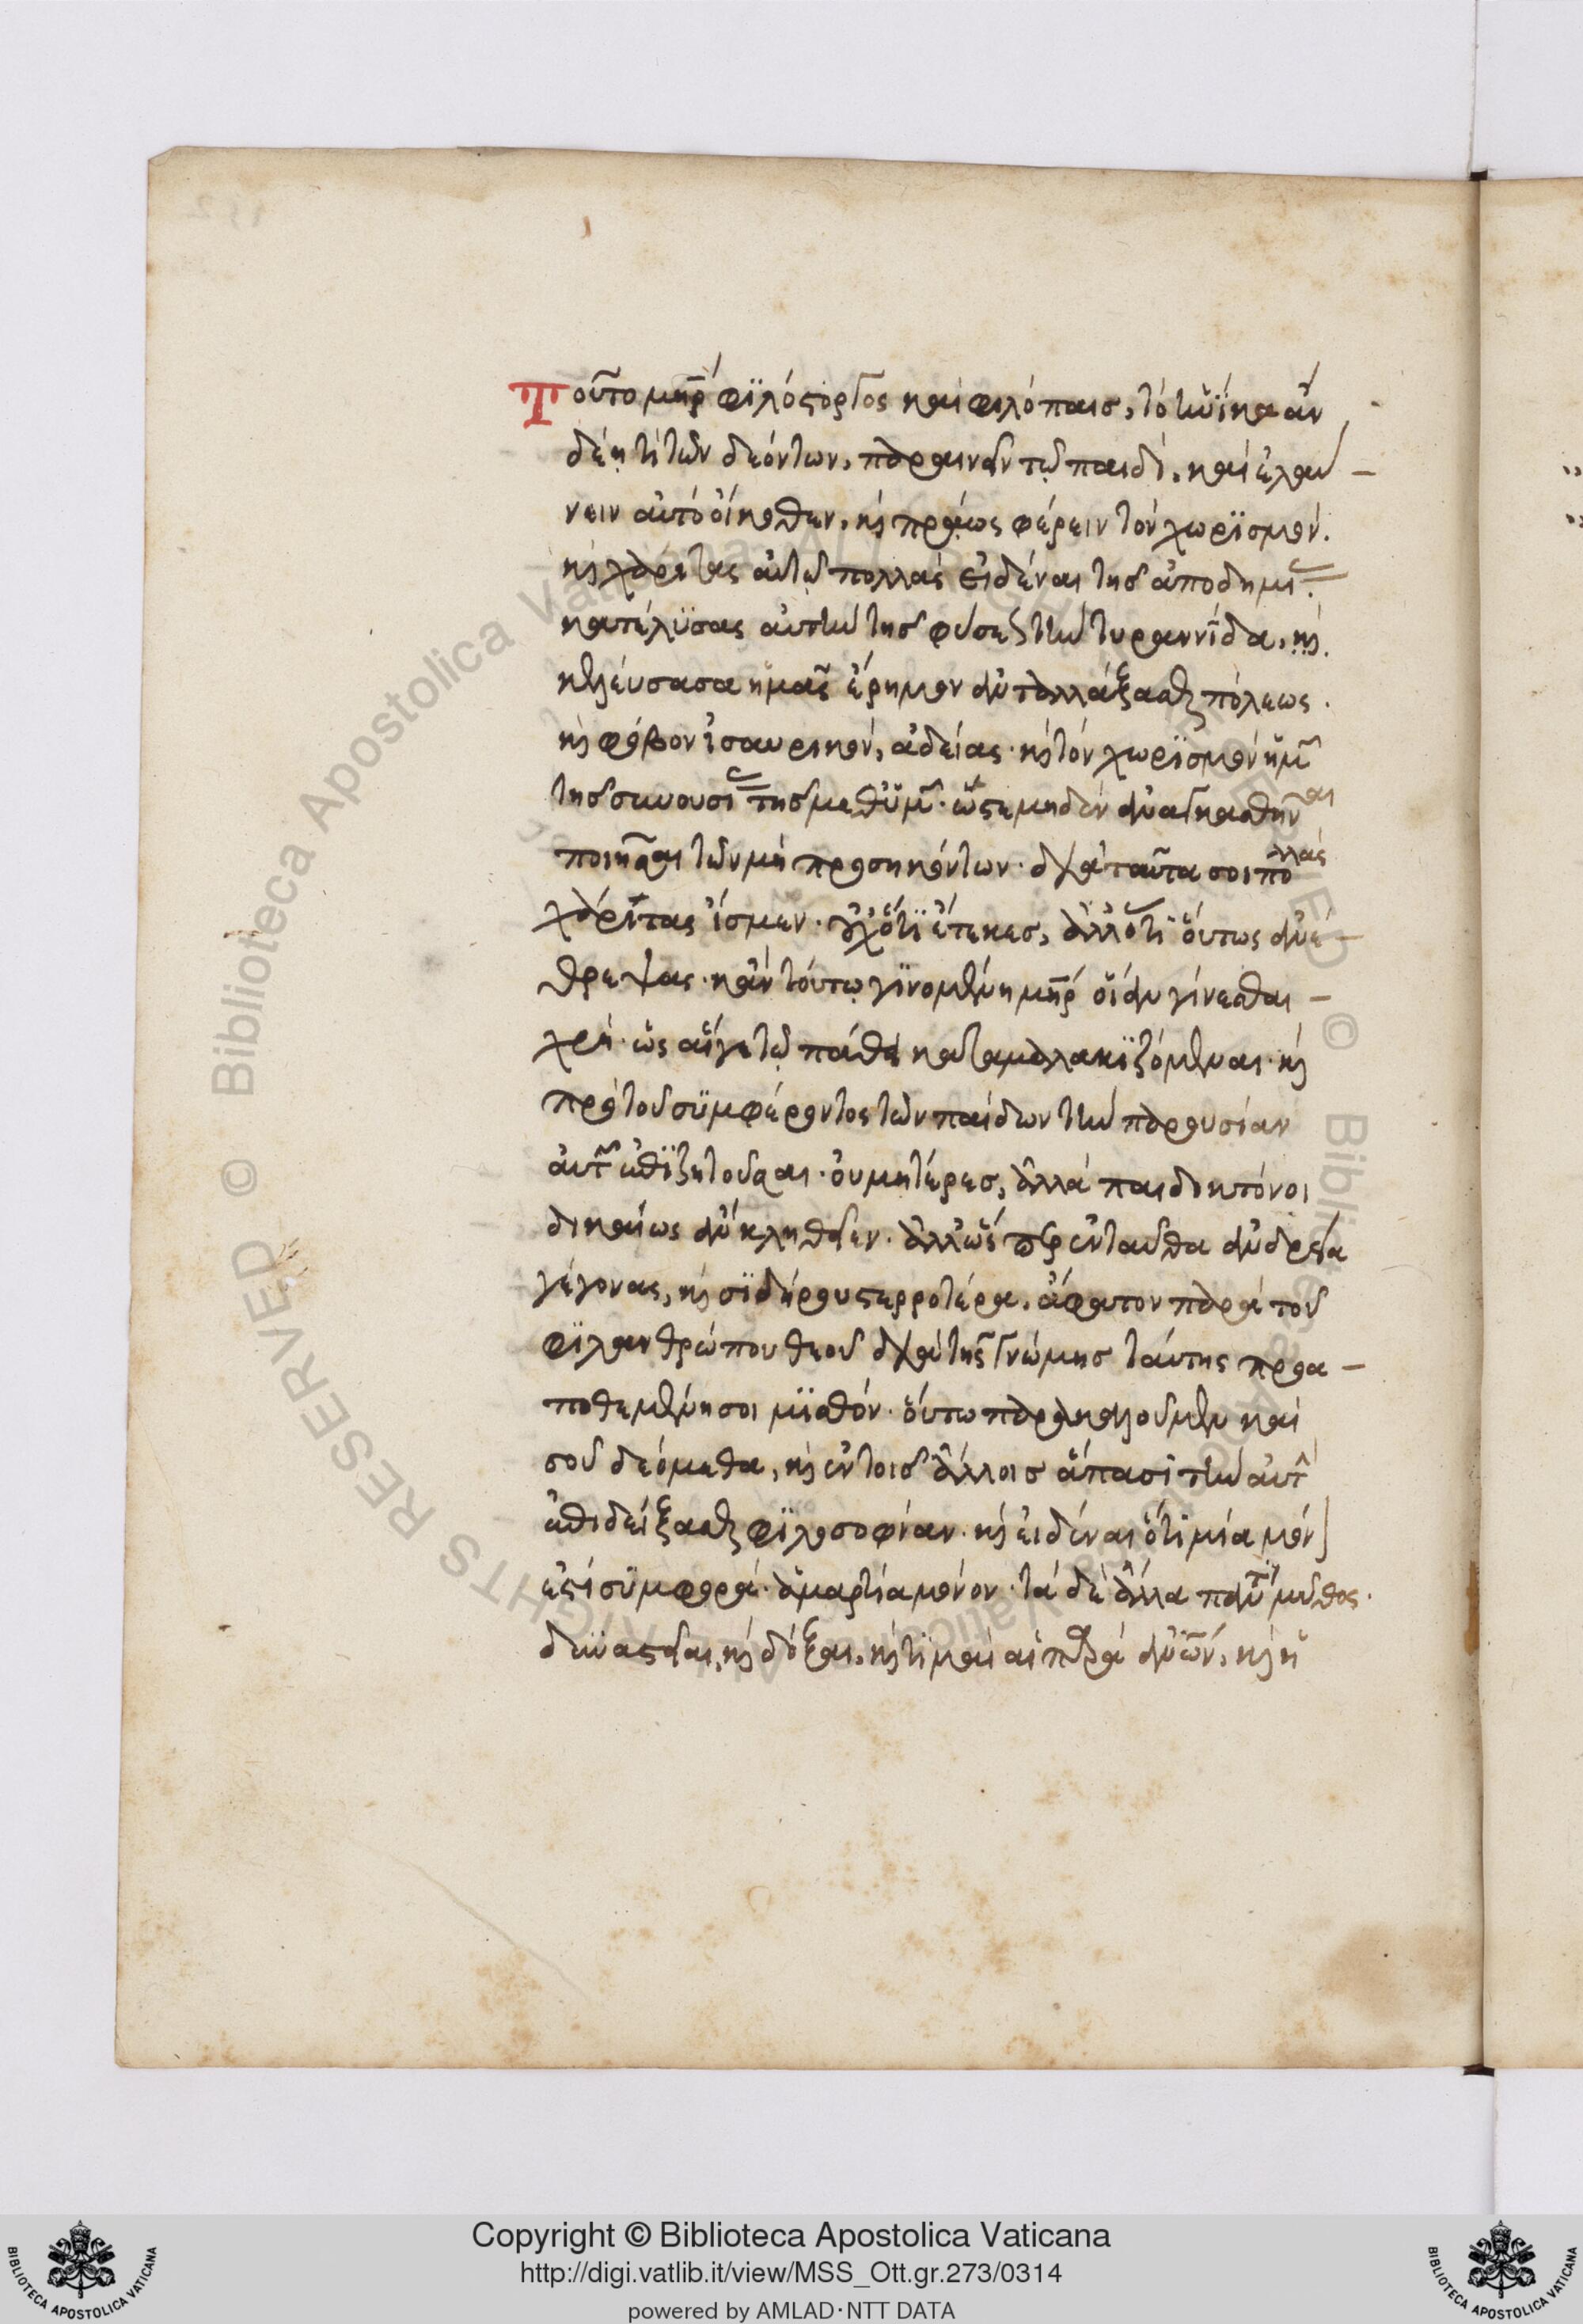 Τοῦτο μηρ φϊλόςοργος καὶ φιλόπαισ, τὸ τὴν ἡνίκα ἂν
δέη τὶ τῶν δεόντων, παραινεῖν τῷ παιδὶ, καὶ ἐλαύ –
νειν αὐτὸ οἴκοθεν, κὶ πράως φέρειν τὸν χωρϊσμόν.
κὶ χάριτας αὐτῷ πολλὰς εἰδέναι τῆσ ἀποδημι.
κατέλϋσας αὐτὴν τῆσ φύσεως τὴν τυραννΐδα, κὶ
κελεύσασα ἡμᾶς ἔρημον ἀνταλλάξασθαι πόλεως.
κὶ φόβον ἰσαυρικὸν, ἀδείας. κὶ τὸν χωρϊσμὸν ἡμ
τῆσ συνουσι τῆσ μεθ ὑμ. ὥςε μηδὲν ἀναγκασθῆναι
ποιῆσαι τῶν μὴ προσηκόντων. διὰ ταῦτα σοι πολλὰς
χάρϊτας ἴσμεν. οὐχ ὅτϊ ἔτεκεσ, ἀλλ ὅτι οὕτως ἀνέ –
θρεψας. κἂν τούτω γϊνομένη μηρ οἵαν γίνεσθαι –
χρή. ὡς αἵ γε τῷ πάθει καταμαλακϊζόμεναι. κὶ
πρὸ τοῦ σϋμφέροντος τῶν παίδων τὴν παρουσίαν
αὐτ ἐπϊζητοῦσαι. οὐ μητέρεσ, ἀλλὰ παιδοκτόνοι
δικαίως ἂν κληθεῖεν. ἀλλ ὥςπερ ἐνταῦθα ἀνδρεία
γέγονας, κὶ σϊδήρου ςερροτέρα, ἄφατον παρὰ τοῦ
φϊλανθρώπου θεοῦ διὰ τῆς γνώμησ ταύτης προα –
ποθεμένη σοι μϊσθόν. οὕτω παρακαλοῦμεν καὶ
σοῦ δεόμεθα, κὶ ἐν τοισ ἄλλοισ ἅπασι τὴν αὐτ
ἐπιδείξασθαι φϊλοσοφίαν. κὶ εἰδέναι ὅτϊ μία μόν
ἐςὶ σϋμφορὰ. ἁμαρτία μόνον. τὰ δὲ ἄλλα πάντα μῦθος.
δυναςεῖαι, κὶ δόξαι, κὶ τϊμαὶ αἱ παρὰ ἀνων, κὶ ἡ
Copyright © Biblioteca Apostolica Vaticana
http://digi.vatlib.it/view/MSS_Ott.gr.273/0314
powered by AMLAD·NTT DATA